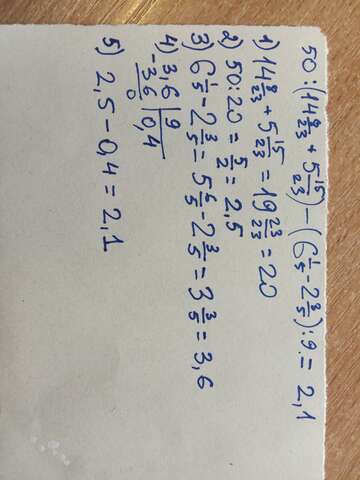 50:(14 8/23 + 5 15/23) - (6 1/5 - 2 3/5):9 = 2,1
1) 14 8/23 + 5 15/23 = 19 23/23 = 20
2) 50:20 = 5/2 = 2,5
3) 6 1/5 - 2 3/5 = 5 6/5 - 2 3/5 = 3 3/5 = 3,6
4) 3,6 | 9
-36 | 0,4
0
5) 2,5 - 0,4 = 2,1